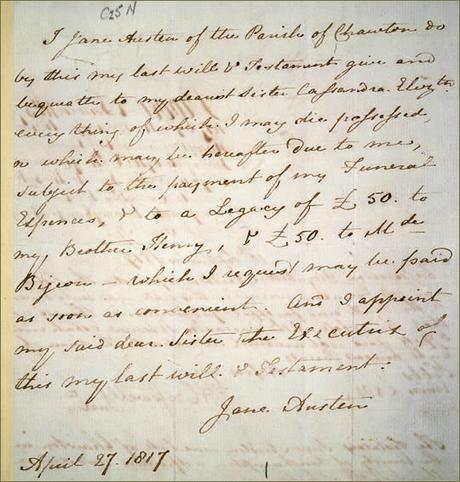 C25N
I Jane Austen of the Parish of Chawton do
by this my last will & Testament give and
bequeath to my dearest Sister Cassandra Elizth
everything of which I may die possessed,
or which may be hereafter due to me,
subject to the payment of my Funeral
Expences, & to a Legacy of £50. to
my Brother Henry, & £50. to Mde
Bigeon - which I request may be paid
as soon as convenient. And I appoint
my said dear Sister the Executrix of
this my last will & Testament.
Jane Austen
April 27. 1817